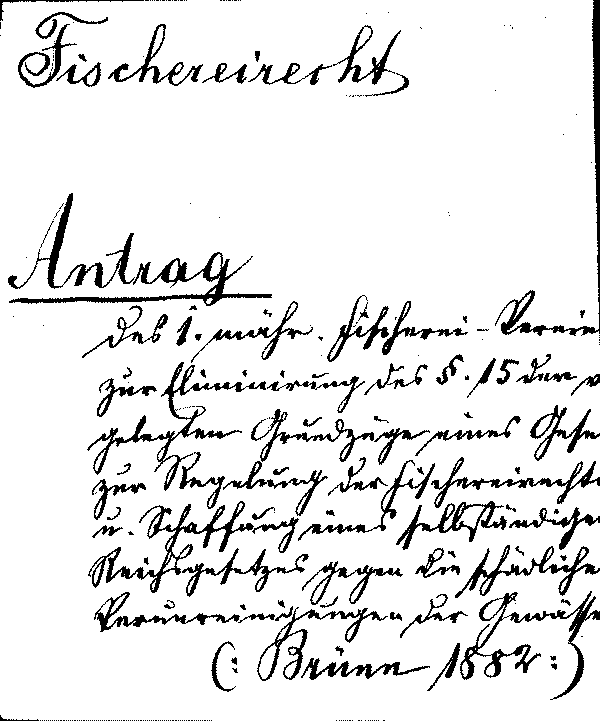 Fischereirecht
Antrag
des 1. mähr. Fischerei-Verein
zur Eliminirung des §. 15 der v
gelegten Grundzüge eines Gese
zur Regelung der Fischereirechte
u. Schaffung eines selbständige
Reichsgesetzes gegen die schädliche
Verunreinigungen der Gewässe
(: Brünn 1882 :)